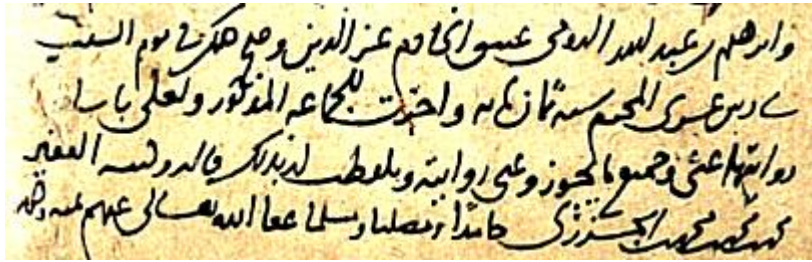 وابرهيم بن عبد الله الرومي عتيق عز الدين وصح ذلك في يوم السبت
سادس عشرى المحرم سنة ثمان مائة واجزت للجماعة المذكورين
روايتها عني وجميع ما يجوز لي وعني روايته وتلفظت بذلك قاله وكتبه الفقير
محمد بن محمد بن محمد الجزري حامدا ومصليا ومسلما عفا الله تعالى عنهم بمنه